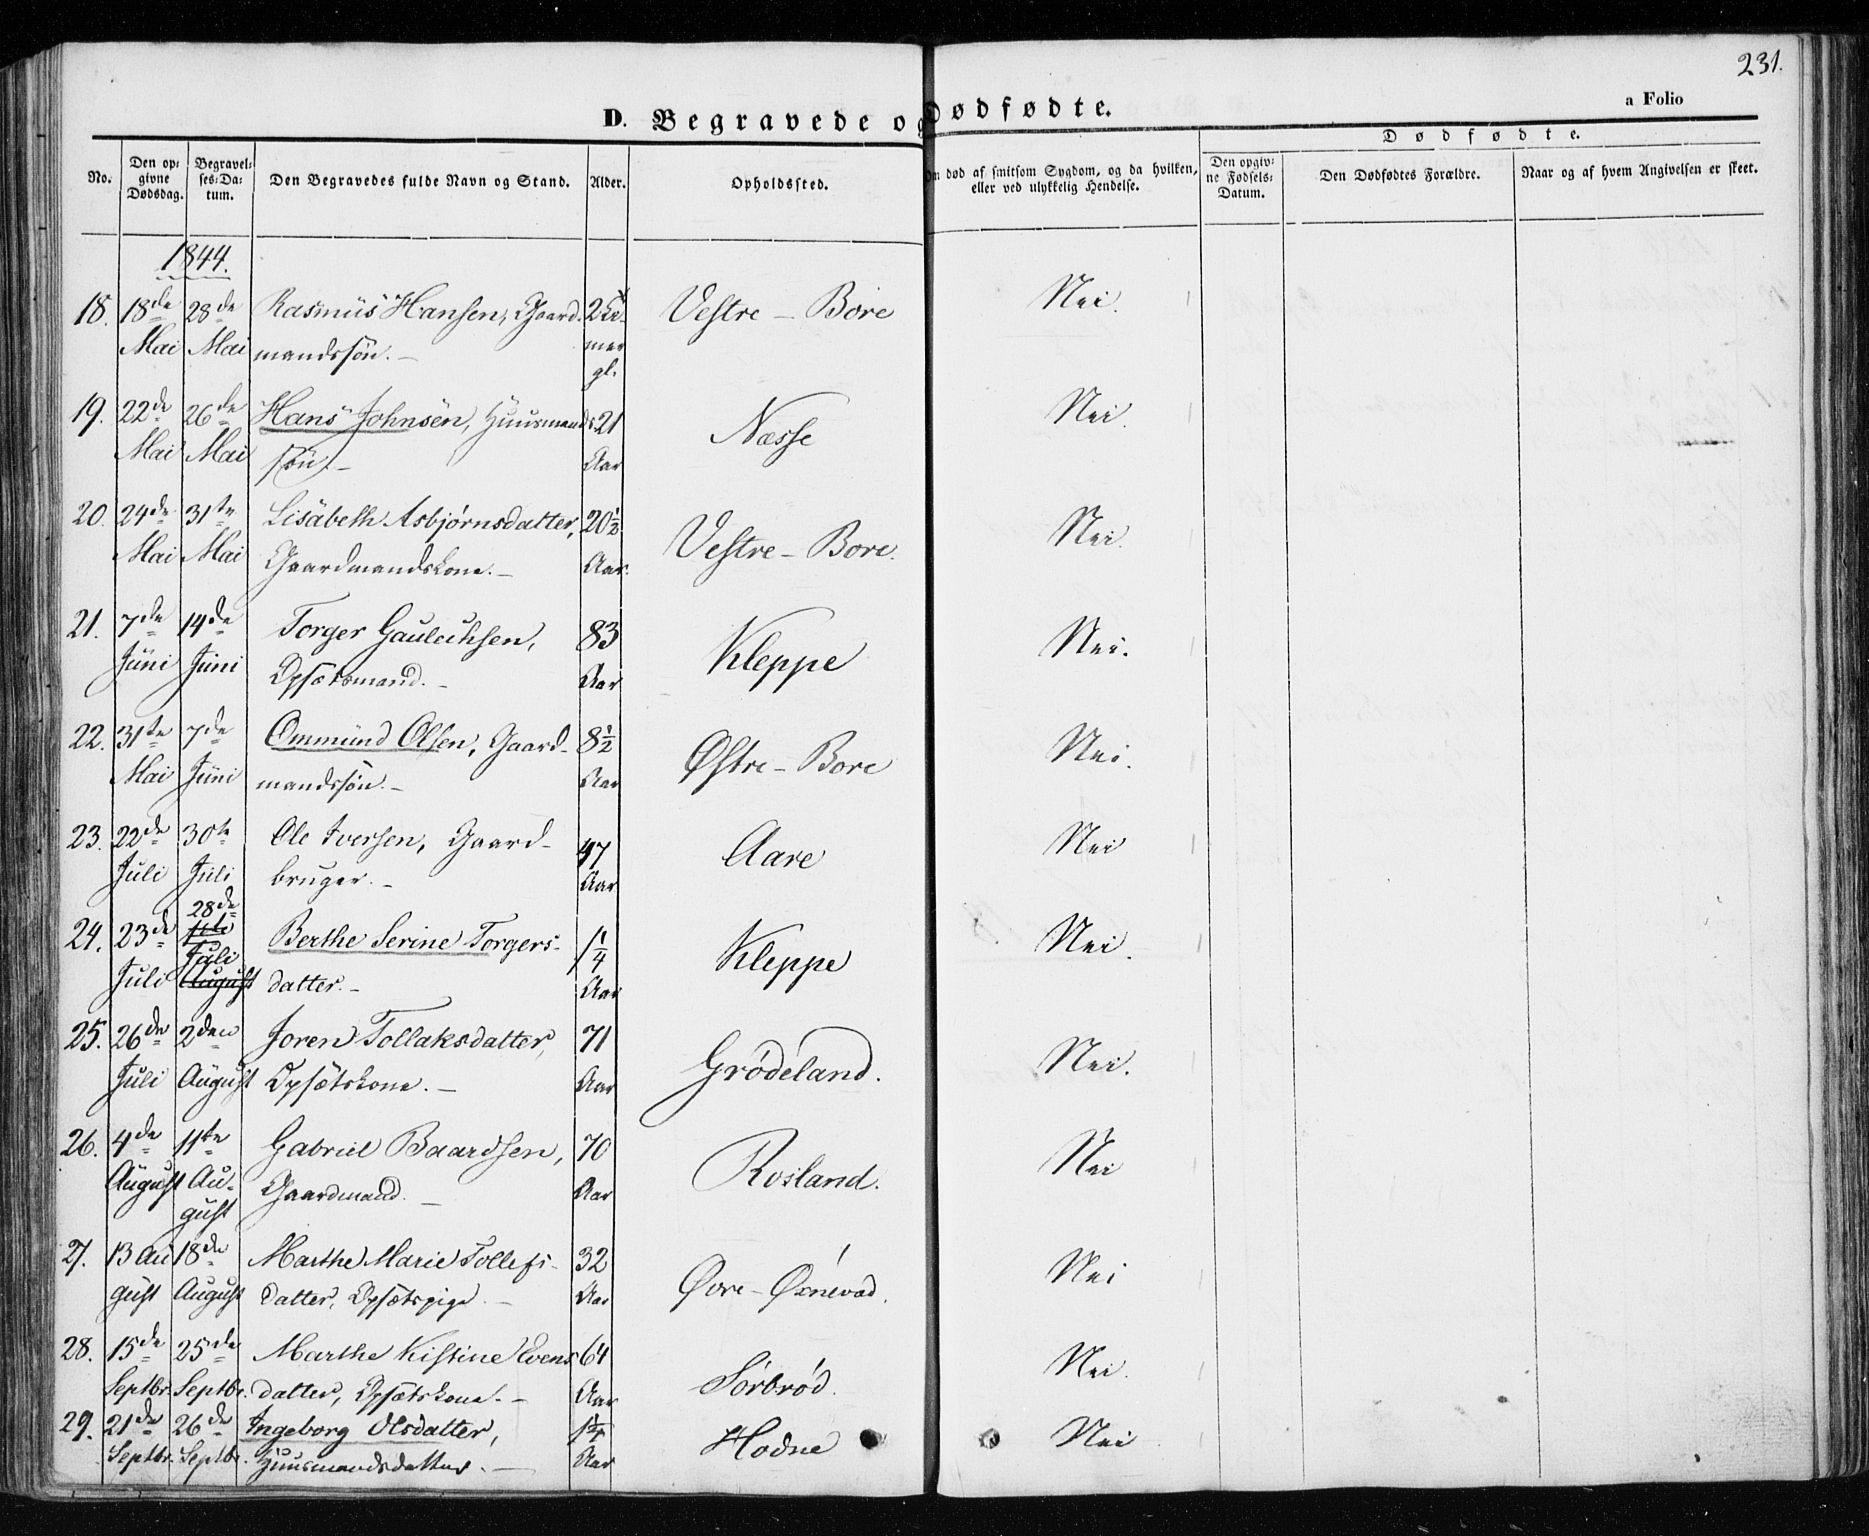 231.
a Folio
D. Begravede og Dødfødte.
Dødfødte.
No.
Den opgivne Dødsdag.
Begravelses-Datum.
Den Begravedes fulde Navn og Stand.
Alder.
Opholdssted.
Om død af smitsom Sygdom, og da hvilken, eller ved ulykkelig Hendelse.
Den opgivne Fødsels-Datum.
Den Dødfødtes Forældre.
Naar og af hvem Angivelsen er skeet.
1844.
18. 18de 28de Rasmus Hansen, Gaard- 2 Ti- Vestre - Bore Nei.
Mai Mai mandssøn. - mer
gl.
19. 22de 26de Hans Johnsen, Huusmands- 21 Næsse Nei.
Mai Mai søn. - Aar
20. 24de 31te Lisabeth Asbjørnsdatter, 20½ Vestre - Bore. Nei.
Mai Mai Gaardmandskone. - Aar.
21. 7de 14de Torger 83 Kleppe Nei.
Juni Juni Opsætsmand. - Aar
22. 31te 7de Ommund Olsen, Gaard- 8½ Østre - Bore Nei.
Mai Juni mandssøn. - Aar
23. 22de 30te Ole Iversen, Gaard- 47 Aare Nei
Juli Juli bruger. - Aar
28de
24. 23de Berthe Serine Torgers- ¼ Kleppe Nei.
Juli
Juli August datter. - Aar
25. 26de 2den Joren Tollaksdatter, 71 Grødeland. Nei.
Juli August Opsætskone. - Aar
26. 4de 11te Gabriel Baardsen, 70 Rosland. Nei
August Au- Gaardmand. - Aar
gust
27. 13 Au 18de Marthe Marie Tollefs- 32 Øvre - Øxnevad. Nei
gust August datter, Opsætspige. - Aar
28. 15de 25de Marthe Kistine Evens 64 Sørbrød. Nei.
Septbr. Septbr. datter, Opsætskone. - Aar
29. 21de 26de Ingeborg Olsdatter, 1¼ Hodne Nei
Septbr. Septbr. Huusmandsdatter. - Aar